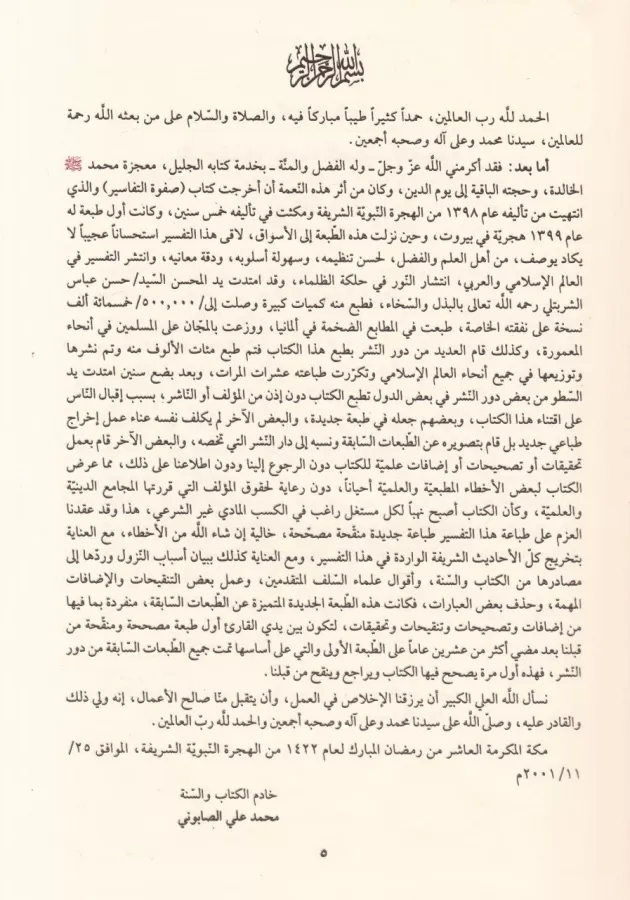 بسم الله الرحمن الرحيم
الحمد للَّه رب العالمين، حمداً كثيراً طيباً مباركاً فيه، والصلاة والسّلام على من بعثه اللَّه رحمة
للعالمين، سيدنا محمد وعلى آله وصحبه أجمعين.
أما بعد: فقد أكرمني اللَّه عزّ وجلّ ـ وله الفضل والمنَّة ـ بخدمة كتابه الجليل، معجزة محمد ﷺ
الخالدة، وحجته الباقية إلى يوم الدين، وكان من أثر هذه النّعمة أن أخرجت كتاب (صفوة التفاسير) والذي
انتهيت من تأليفه عام ١٣٩٨ من الهجرة النّبويّة الشريفة ومكثت في تأليفه خمس سنين، وكانت أول طبعة له
عام ١٣٩٩ هجريّة في بيروت، وحين نزلت هذه الطّبعة إلى الأسواق، لاقى هذا التفسير استحساناً عجيباً لا
يكاد يوصف، من أهل العلم والفضل، لحسن تنظيمه، وسهولة أسلوبه، ودقة معانيه، وانتشر التفسير في
العالم الإسلامي والعربي، انتشار النّور في حلكة الظلماء، وقد امتدت يد المحسن السّيد/ حسن عباس
الشربتلي رحمه اللَّه تعالى بالبذل والسّخاء، فطبع منه كميات كبيرة وصلت إلى/ ٥٠٠,٠٠٠/ خمسمائة ألف
نسخة على نفقته الخاصة، طبعت في المطابع الضخمة في ألمانيا، ووزعت بالمجّان على المسلمين في أنحاء
المعمورة، وكذلك قام العديد من دور النّشر بطبع هذا الكتاب فتم طبع مئات الألوف منه وتم نشرها
وتوزيعها في جميع أنحاء العالم الإسلامي وتكرّرت طباعته عشرات المرات، وبعد بضع سنين امتدت يد
السّطو من بعض دور النّشر في بعض الدول تطبع الكتاب دون إذن من المؤلف أو النّاشر، بسبب إقبال النّاس
على اقتناء هذا الكتاب، وبعضهم جعله في طبعة جديدة، والبعض الآخر لم يكلف نفسه عناء عمل إخراج
طباعي جديد بل قام بتصويره عن الطّبعات السّابقة ونسبه إلى دار النّشر التي تخصه، والبعض الآخر قام بعمل
تحقيقات أو تصحيحات أو إضافات علميّة للكتاب دون الرجوع إلينا ودون اطلاعنا على ذلك، مما عرض
الكتاب لبعض الأخطاء المطبعيّة والعلميّة أحياناً، دون رعاية لحقوق المؤلف التي قررتها المجامع الدينيّة
والعلميّة، وكأن الكتاب أصبح نهباً لكل مستغل راغب في الكسب المادي غير الشرعي، هذا وقد عقدنا
العزم على طباعة هذا التفسير طباعة جديدة منقّحة مصحّحة، خالية إن شاء اللَّه من الأخطاء، مع العناية
بتخريج كلّ الأحاديث الشريفة الواردة في هذا التفسير، ومع العناية كذلك ببيان أسباب النّزول وردّها إلى
مصادرها من الكتاب والسّنة، وأقوال علماء السّلف المتقدمين، وعمل بعض التنقيحات والإضافات
المهمة، وحذف بعض العبارات، فكانت هذه الطّبعة الجديدة المتميزة عن الطّبعات السّابقة، منفردة بما فيها
من إضافات وتصحيحات وتنقيحات وتحقيقات، لتكون بين يدي القارئ أول طبعة مصححة ومنقّحة من
قبلنا بعد مضي أكثر من عشرين عاماً على الطّبعة الأولى والتي على أساسها تمت جميع الطّبعات السابقة من دور
النّشر، فهذه أول مرة يصحح فيها الكتاب ويراجع وينقح من قبلنا.
نسأل اللَّه العلي الكبير أن يرزقنا الإخلاص في العمل، وأن يتقبل منّا صالح الأعمال، إنه ولي ذلك
والقادر عليه، وصلّى اللَّه على سيدنا محمد وعلى آله وصحبه أجمعين والحمد للَّه ربّ العالمين.
مكة المكرمة العاشر من رمضان المبارك لعام ١٤٢٢ من الهجرة النّبويّة الشريفة، الموافق ٢٥/
١١/ ٢٠٠١م
خادم الكتاب والسّنة
محمد علي الصابوني
٥